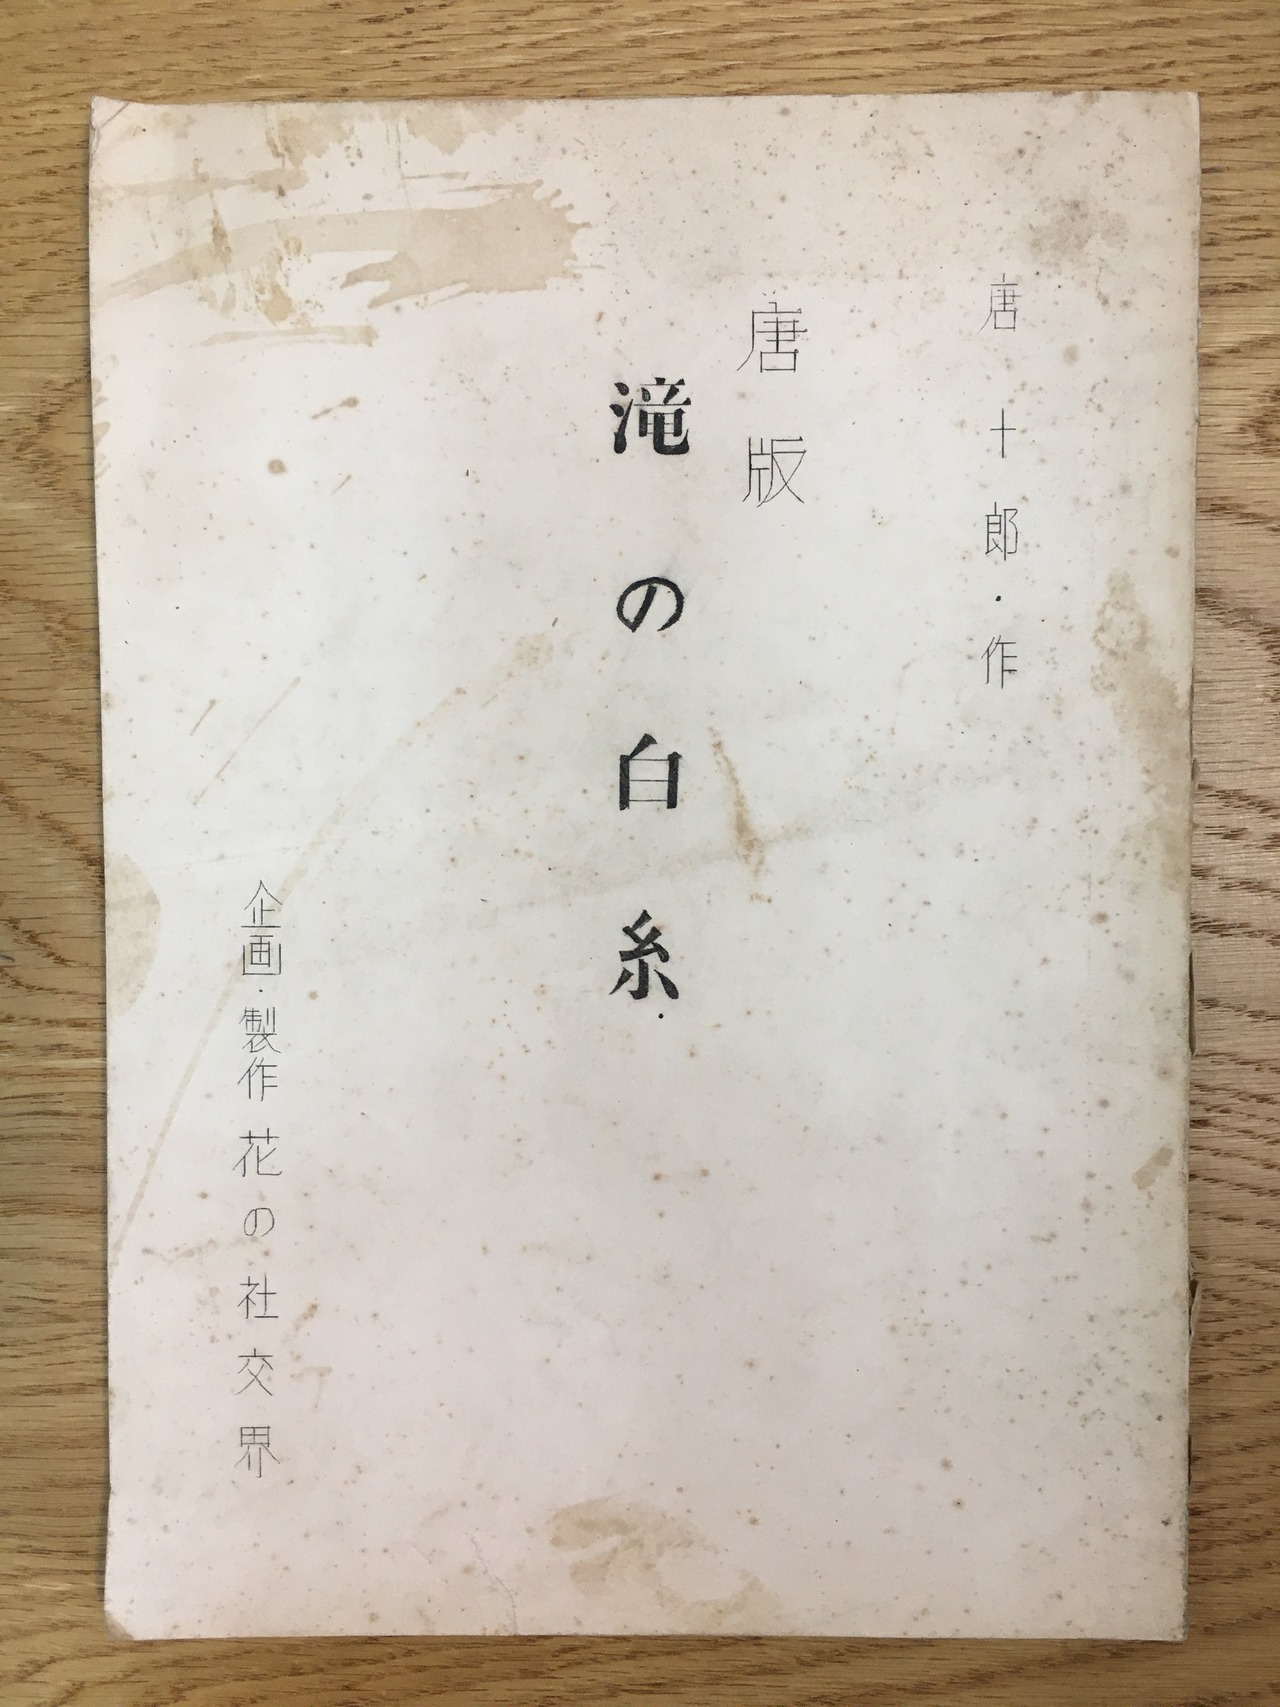 唐十郎・作
唐版
滝の白糸
企画・製作 花の社交界